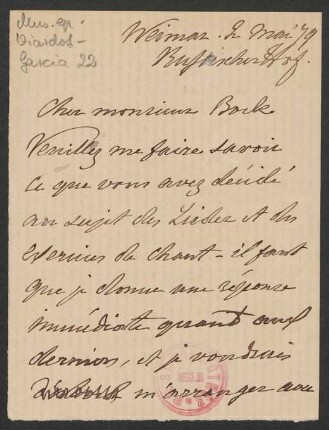 Mus. ep.
Viardot-
Garcia 22
Weimar. 2 Mai 79
Russischer Hof.
Cher monsieur Bock
Veuillez me faire savoir
ce que vous avez décidé
au sujet des Lieder et des
exercices de chant - il faut
que je donne une réponse
immédiate quant aux
derniers, et je voudrais
m'arranger avec